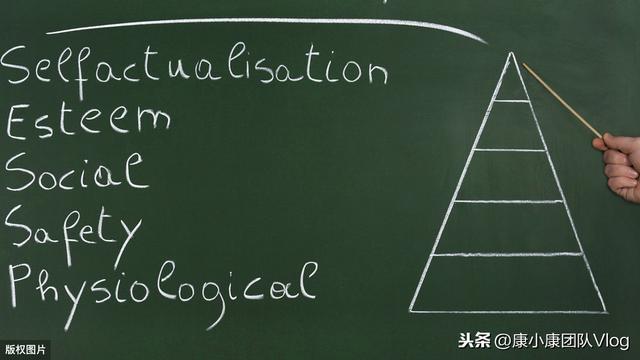 Selfactualisation
Esteem
Social
Safety
Physiological
版权图片
头条 @康小康团队Vlog